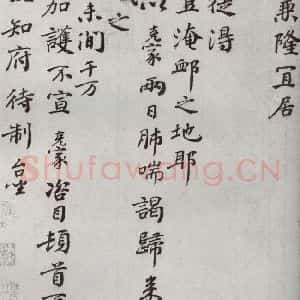 兼隆一宜居
從淂
宜淹邺之地耶
以克家兩日肺喘謁歸未
之
未涧千万
加護不宣克家咨目頓首再
知府待制台坐
Shufawang.CN